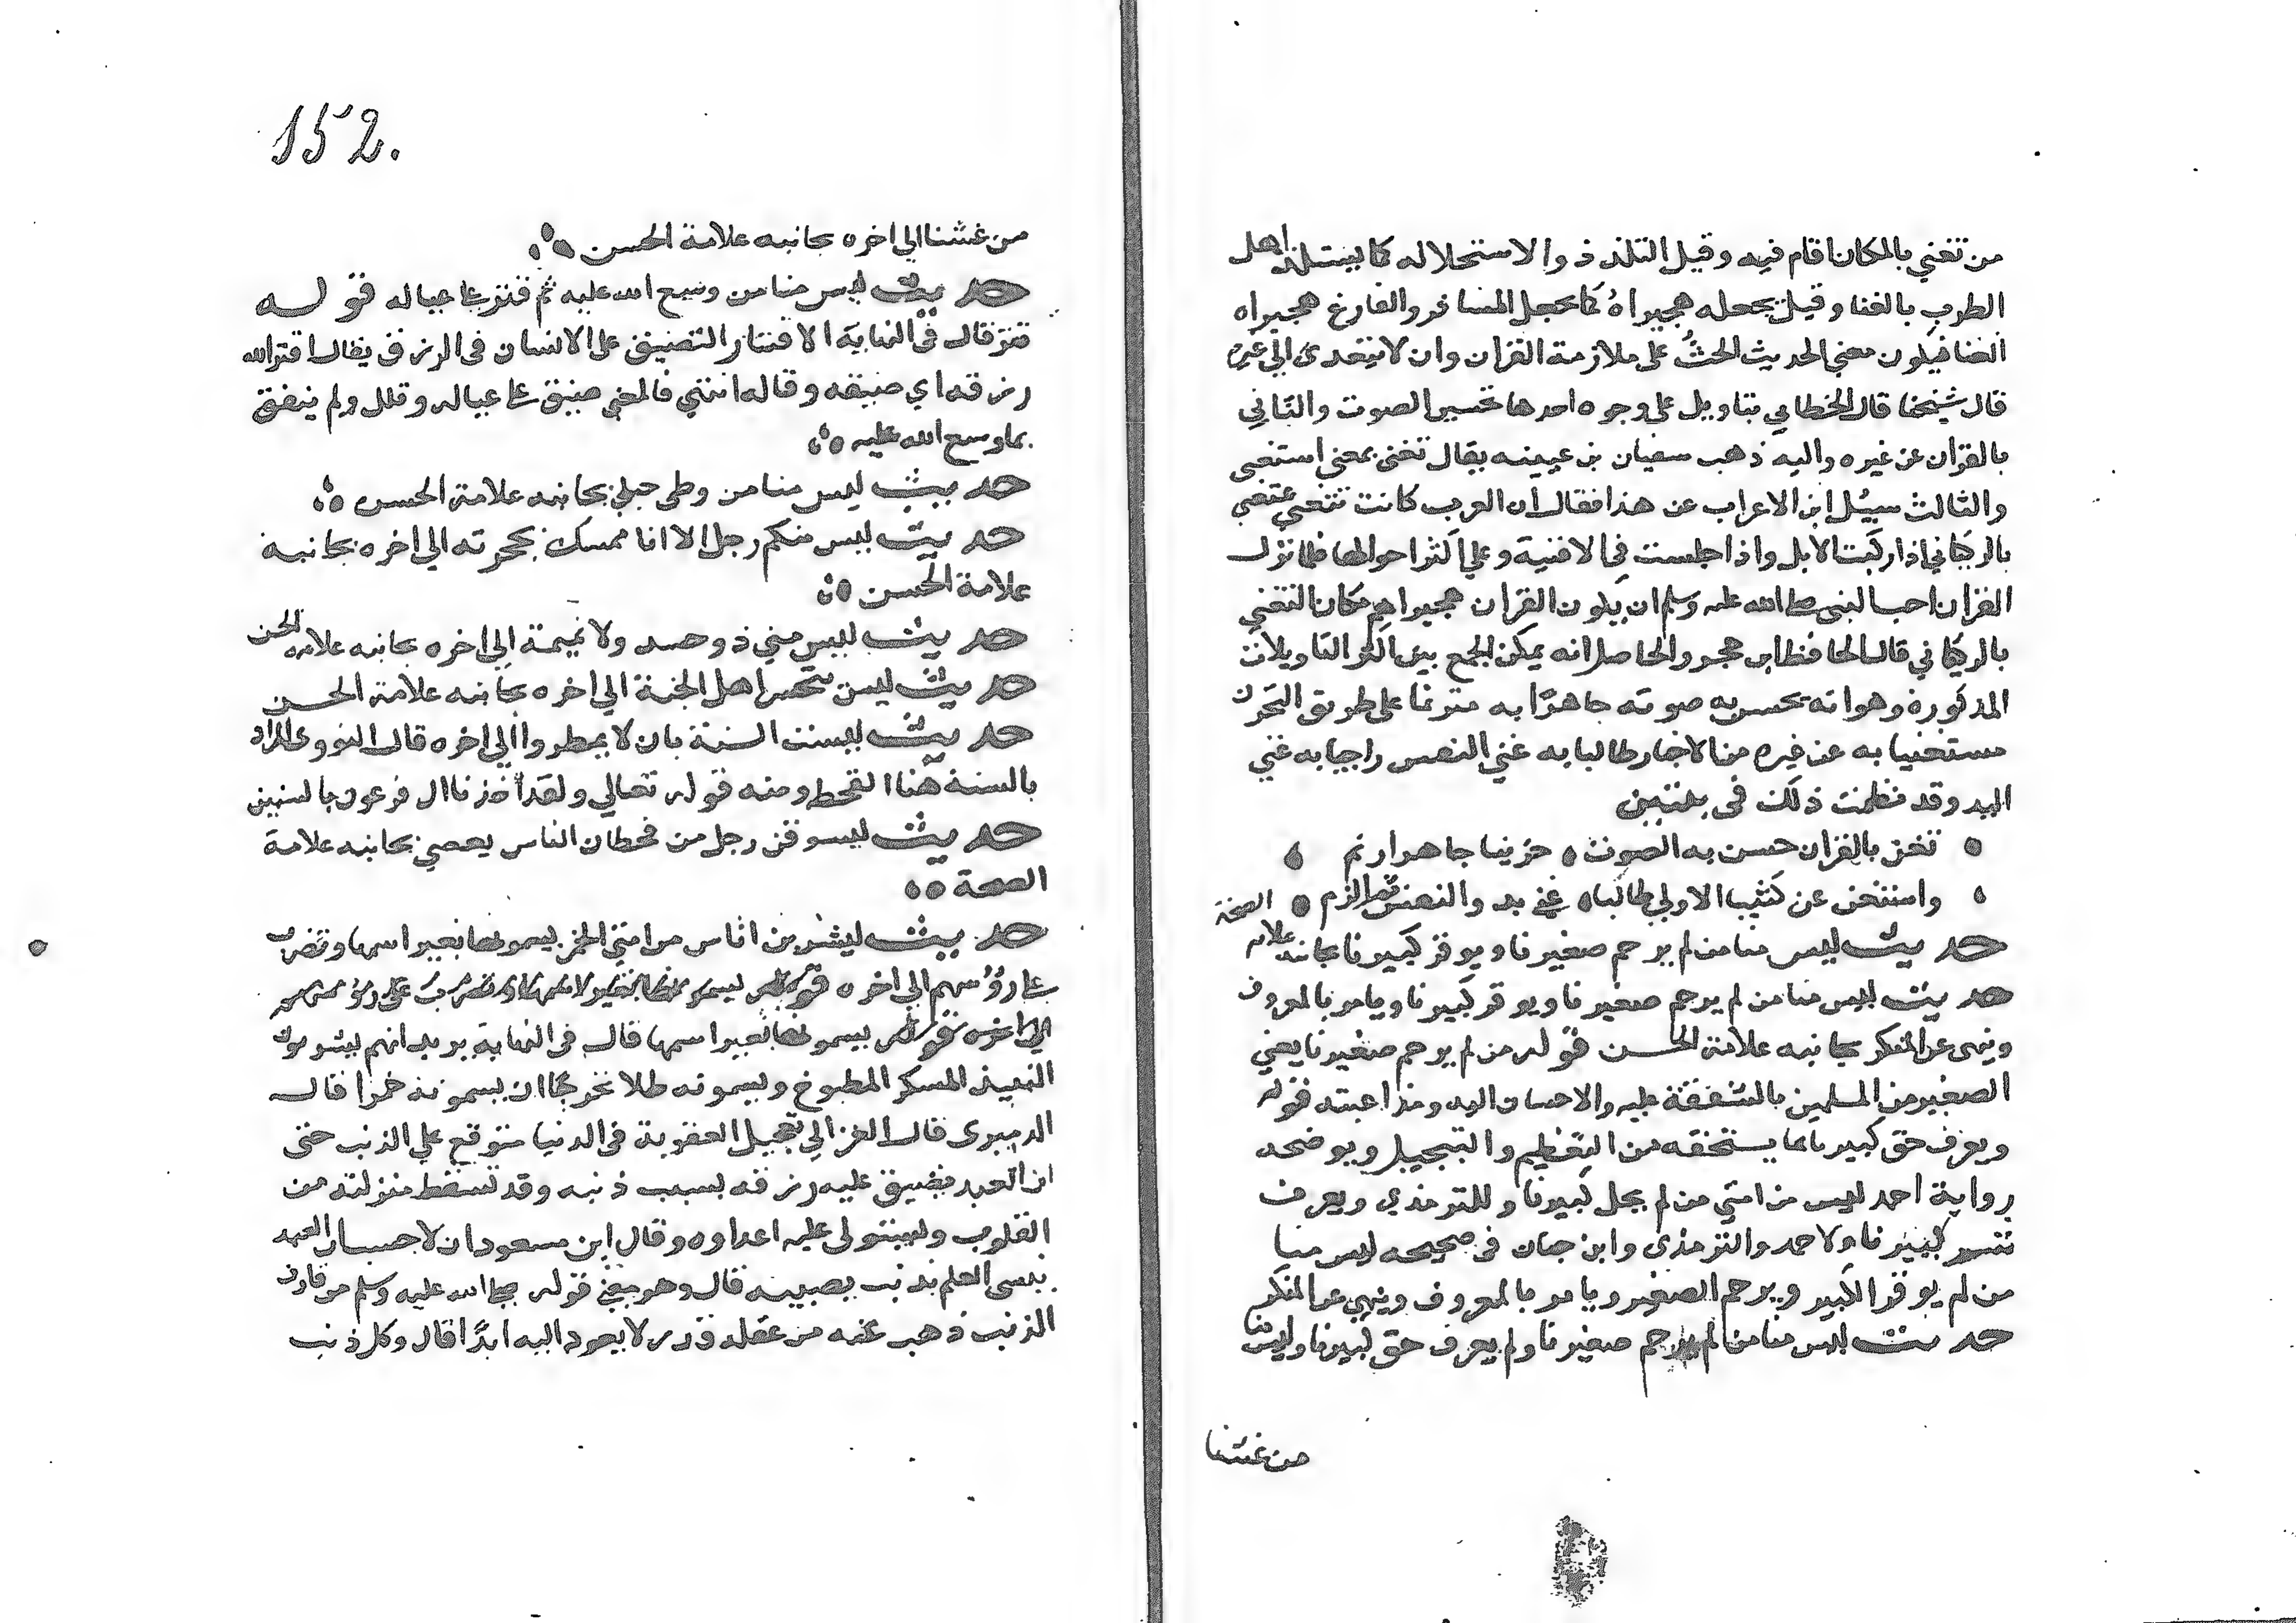 من تغني بالمكان اقام فيه وقيل التلذذ والاستحلاله كما يستلذ اهل
الطرب بالغنا وقيل يجعله هجيراهُ كما يجعل المسافر والفارغ هجيراه
الغنا فيكون معني الحديث الحثُّ على ملازمة القران وان لا يتعدى الي غيره
قال شيخنا قال الخطابي يتاويل على وجوه احدها تحسين الصوت والثاني
بالقران عن غيره واليه ذهب سفيان بن عيينه يقال تغنى بمعني استغنى
والثالث سيُل ابن الاعراب عن هذا فقال ان العرب كانت تتغني
بالركباني اذا ركبت الابل واذا جلست في الافنية وعلي اكثر احوالها فلما نزل
القران احب النبي صلى الله عليه وسلم ان يكون القران هجيراهم مكان التغني
بالركباني قال الحافظ ابن حجر والحاصل انه يمكن الجمع بين اكثر التاويلات
المذكوره وهو انه يحسن به صوته جاهرًا به مترنما على طريق التحزن
مستغنيا به عن غيره من الاخبار طالبا به غني النفس راجيا به غني
اليد وقد نظمت ذلك في بيتين
تغن بالقران حسن به الصوت حزينا جاهرا رنم
واستغن عن كتب الاولي طالبا غني يد والنفس ثم الزم
حديث ليس منا من لم يرحم صغيرنا ويوقر كبيرنا بجانبه علامة الصحة
حديث ليس منا من لم يرحم صغيرنا ويوقر كبيرنا ويامر بالمعروف
وينهى عن المنكر بجانبه علامة الحسن قوله من لم يرحم صغيرنا يعني
الصغير من المسلمين بالشفقة عليه والاحسان اليه ومداعبته قوله
ويعرف حق كبيرنا بما يستحقه من التعظيم والتبجيل ويوضحه
رواية احمد ليس من امتي من لم يجل كبيرنا وللترمذي ويعرف
كبيرنا ولاحمد والترمذي وابن حبان في صحيحه ليس منا
من لم يوقر الكبير ويرحم الصغير ويامر بالمعروف وينهي عن المنكر
حديث ليس منا من لم يرحم صغيرنا ولم يعرف حق كبيرنا وليس منا
من غشنا
152.
من غشنا الي اخره بجانبه علامة الحسن
حديث ليس منا من وسع الله عليه ثم قتر على عياله قوله
قتر قال في النهاية الاقتار التضييق على الانسان في الرزق يقال اقتر الله
رزقه اي ضيقه وقاله انتهي فالمعني ضيق على عياله وقلل ولم ينفق
بما وسع الله عليه
حديث ليس منا من وطى حبلي بجانبه علامة الحسن
حديث ليس منكم رجل الا انا ممسك بحجرته الي اخره بجانبه
علامة الحسن
حديث ليس مني ذو حسد ولا نميمة الي اخره بجانبه علامة الحسن
حديث ليس يتحسر اهل الجنة الي اخره بجانبه علامة الحسن
حديث ليست السنة بان لا يمطروا الي اخره قال النووي المراد
بالسنة هنا القحط ومنه قوله تعالي ولقد اخذنا ال فرعون بالسنين
حديث ليسوقن رجل من قحطان الناس بعصي بجانبه علامة
الصحة
حديث ليشربن اناس من امتي الخمر يسمونها بغير اسمها وتضرب
على رؤسهم الي اخره قوله يسمونها بغير اسمها وتضرب على رؤسهم
الي اخره قوله يسمونها بغير اسمها قال في النهاية يريد انهم يشربون
النبيذ المسكر المطبوخ ويسمونه طلا تحرجًا ان يسمونه خمرا قال
الدميري قال الغزالي تعجيل العقوبة في الدنيا متوقع علي الذنب حتى
ان العبد يضيق عليه رزقه بسبب ذنبه وقد تسقط منزلته من
القلوب وليستولى عليه اعداوه وقال ابن مسعود ان لاحسب ان العبد
ينسى العلم بذنب يصيبه قال وهو معني قوله صلى الله عليه وسلم من قارف
الذنب ذهب عنه من عقله قدر لا يعود اليه ابدًا قال وكل ذنب